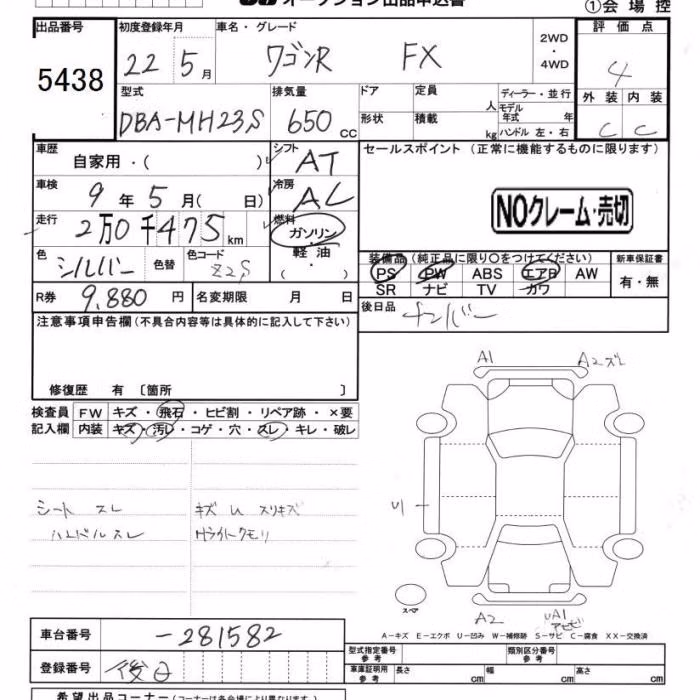 オークション出品申込書 ①会場控
出品番号 初度登録年月 車名・グレード 2WD・4WD 評価点
5438 22年5月 ワゴンR FX 4
型式 排気量 ドア 定員 人 ディーラー・並行 外装 内装
DBA-MH23S 650cc 形状 積載 kg モデル年式 年 C C
ハンドル 左・右
車歴 自家用・( ) シフト AT セールスポイント (正常に機能するものに限ります)
車検 9年5月( 日) 冷房 AC
NOクレーム・売切
走行 2万0千475km 燃料 ガソリン・軽油・( )
色 シルバー 色替 色コード Z2S
装備品(純正品に限り○をつけてください) 新車保証書
PS PW ABS エアB AW 有・無
SR ナビ TV カワ
R券 9,880円 名変期限 月 日 後日品 ナンバー
注意事項申告欄(不具合内容等は具体的に記入して下さい)
修復歴 有〔箇所 〕
検査員 FW キズ・飛石・ヒビ割・リペア跡・×要
記入欄 内装 キズ・汚レ・コゲ・穴・スレ・キレ・破レ
A1 A2ズレ
シート スレ キズ U スリキズ
ハンドルスレ Hライトクモリ
U1
スペア
A2 UA1
アセビ
A-キズ E-エクボ U-凹み W-補修跡 S-サビ C-腐食 XX-交換済
車台番号 -281582
型式指定番号 参考 類別区分番号 参考
登録番号 後日
車庫証明用 参考 長さ cm 幅 cm 高さ cm
希望出品コーナー(コーナーは各会場により異なります)